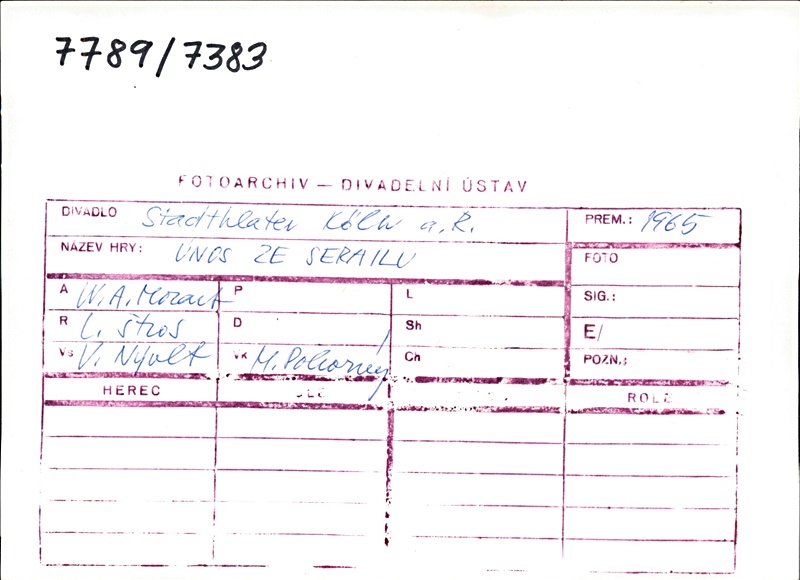 7789/7383
FOTOARCHIV — DIVADELNÍ ÚSTAV
DIVADLO Stadttheater Köln a. R. PREM.: 1965
NÁZEV HRY: ÚNOS ZE SERAILU FOTO
A W. A. Mozart P L SIG.:
R L. Štros D Sh E/
Vs V. Nývlt Vk M. Pokorný Ch POZN.:
HEREC ROLE